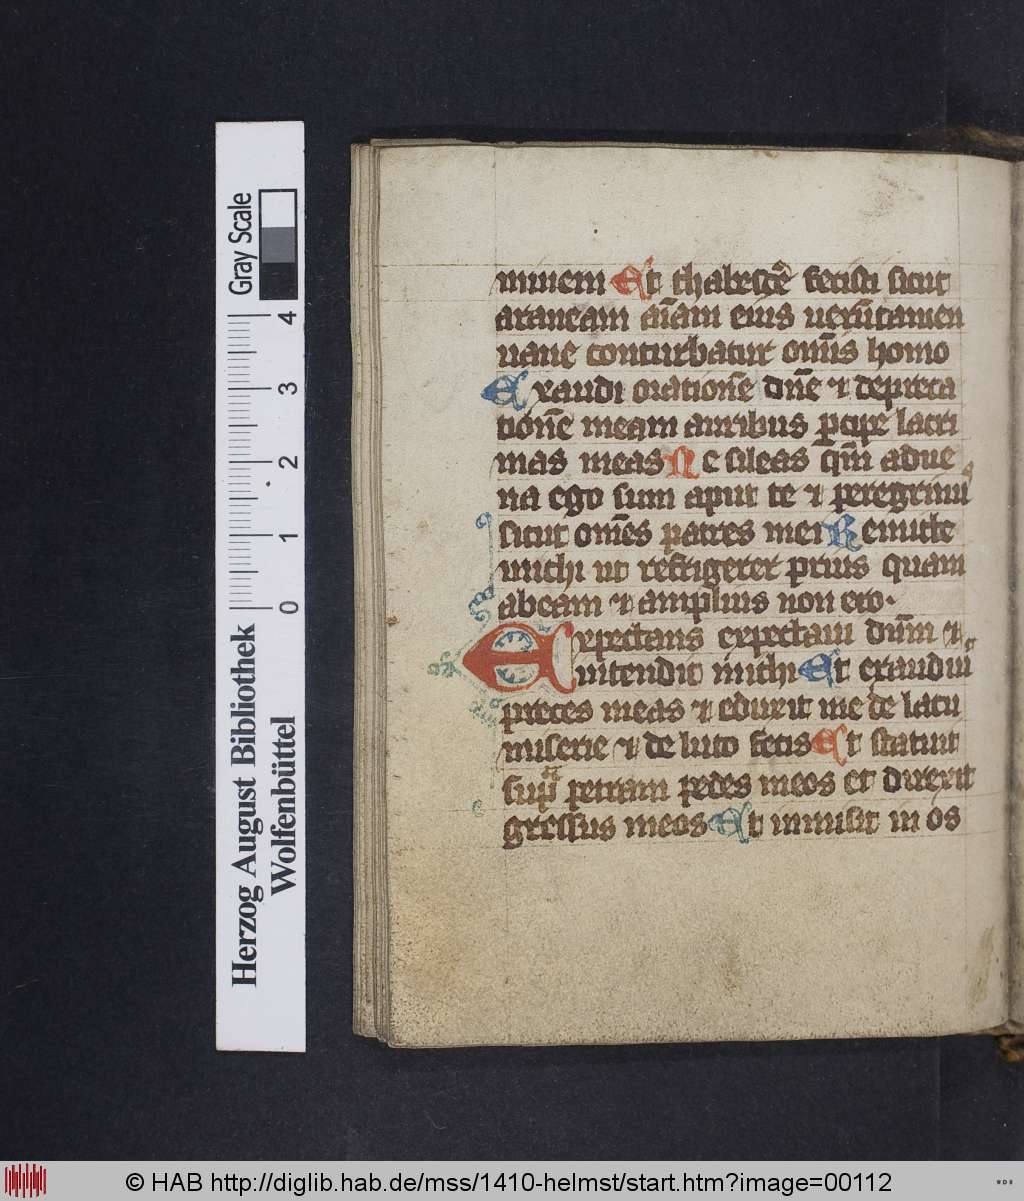 Gray Scale
4
3
2
1
0
Herzog August Bibliothek
Wolfenbüttel
minem Et thabesce᷒ fecisti sicut
araneam aīam eius uerūtamen
uane conturbatur om̄s homo
Exaudi oratiōne dn̄e ⁊ depreca
tiōne meam auribus ꝑcipe lacri
mas meas Ne sileas qm̄ adue
na ego sum aput te ⁊ peregrinus
sicut om̄es patres mei Remitte
michi ut refrigeret prius quam
abeam ⁊ amplius non ero·
Expectans expectaui dn̄m ⁊
intendit michi Et exaudiuit
preces meas ⁊ eduxit me de lacu
miserie ⁊ de luto fecis Et statuit
sup̄ petram pedes meos et direxit
gressus meos Et inmisit in os
© HAB http://diglib.hab.de/mss/1410-helmst/start.htm?image=00112